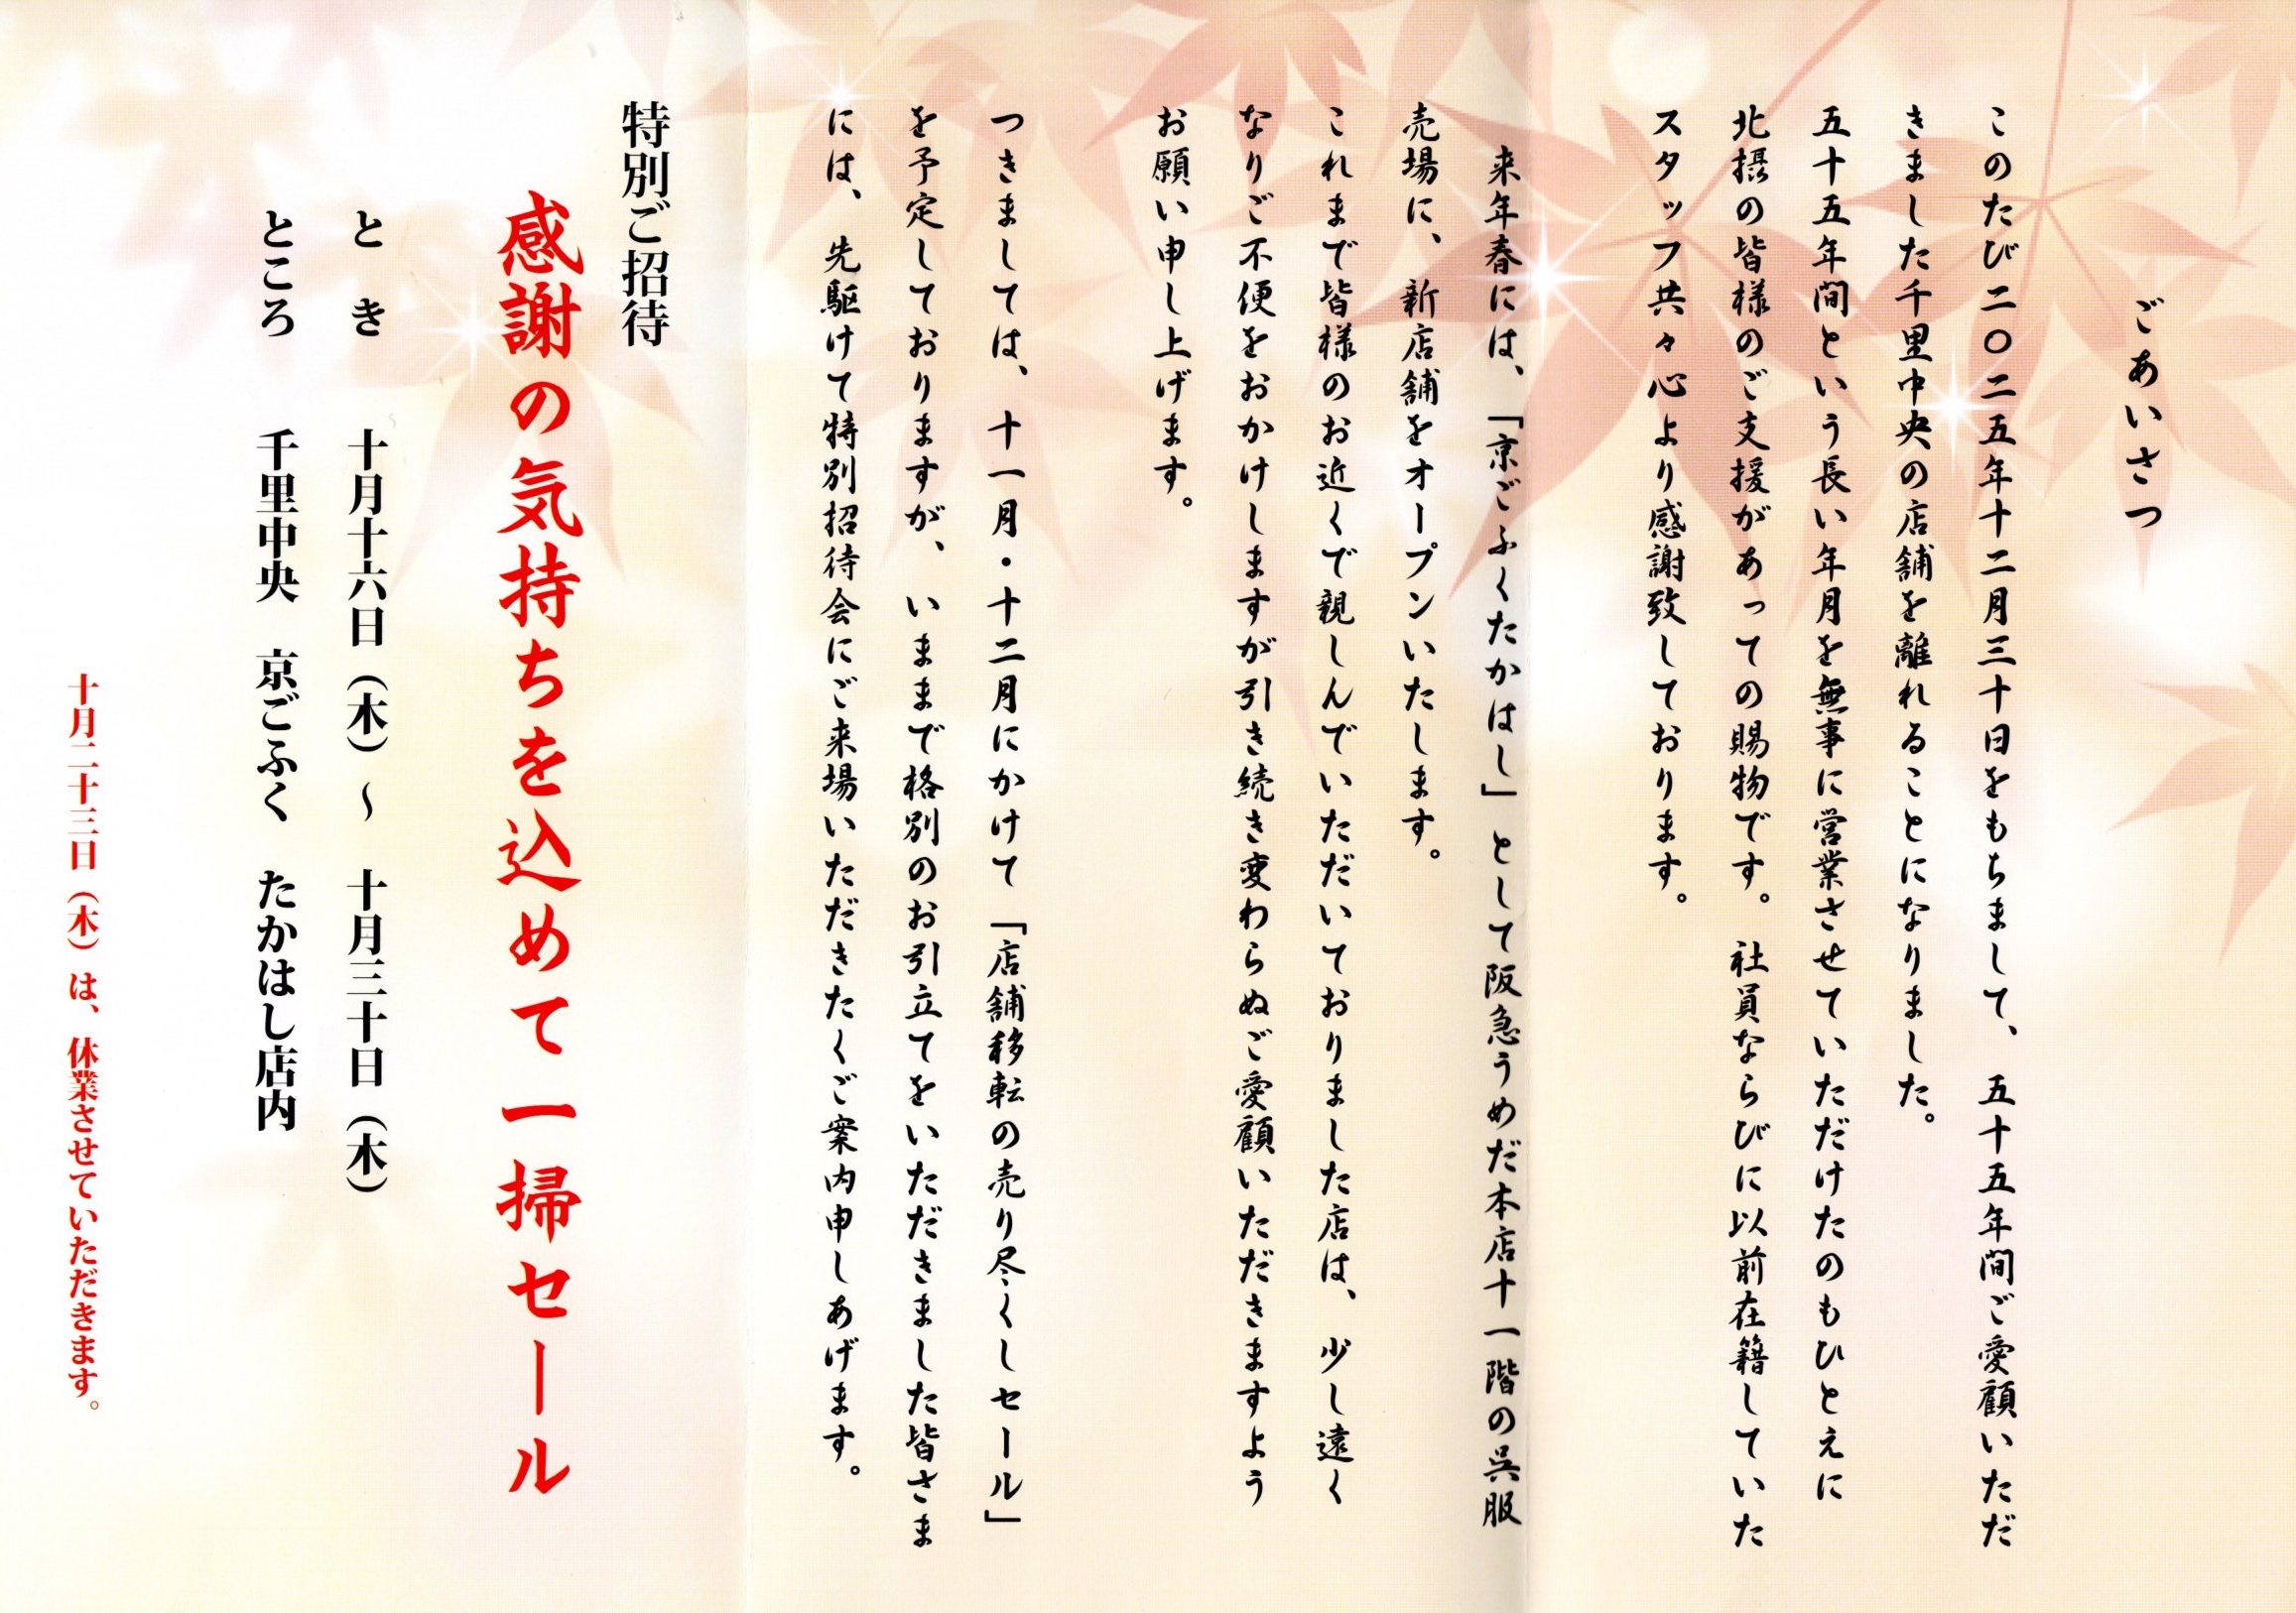 ごあいさつ
このたび二〇二五年十二月三十日をもちまして、五十五年間ご愛顧いただ
きました千里中央の店舗を離れることになりました。
五十五年間という長い年月を無事に営業させていただけたのもひとえに
北摂の皆様のご支援があっての賜物です。社員ならびに以前在籍していた
スタッフ共々心より感謝致しております。
来年春には、「京ごふくたかはし」として阪急うめだ本店十一階の呉服
売場に、新店舗をオープンいたします。
これまで皆様のお近くで親しんでいただいておりました店は、少し遠く
なりご不便をおかけしますが引き続き変わらぬご愛顧いただきますよう
お願い申し上げます。
つきましては、十一月・十二月にかけて「店舗移転の売り尽くしセール」
を予定しておりますが、いままで格別のお引立てをいただきました皆さま
には、先駆けて特別招待会にご来場いただきたくご案内申しあげます。
特別ご招待
感謝の気持ちを込めて一掃セール
とき 十月十六日（木）～ 十月三十日（木）
ところ 千里中央 京ごふく たかはし店内
十月二十三日（木）は、休業させていただきます。